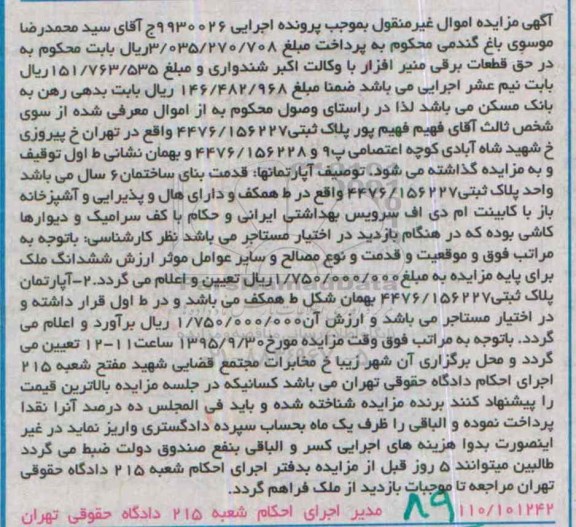 آگهی مزایده اموال غیرمنقول بموجب پرونده اجرایی ۹۹۳۰۰۲۶ج آقای سید محمدرضا
موسوی باغ گندمی محکوم به پرداخت مبلغ ۳/۰۳۵/۲۷۰/۷۰۸ریال بابت محکوم به
در حق قطعات برقی منیر افزار با وکالت اکبر شندواری و مبلغ ۱۵۱/۷۶۳/۵۳۵ریال
بابت نیم عشر اجرایی می باشد ضمنا مبلغ ۱۴۶/۴۸۲/۹۶۸ ریال بابت بدهی رهن به
بانک مسکن می باشد لذا در راستای وصول محکوم به از اموال معرفی شده از سوی
شخص ثالث آقای فهیم فهیم پور پلاک ثبتی۴۴۷۶/۱۵۶۲۲۷ واقع در تهران خ پیروزی
خ شهید شاه آبادی کوچه اعتصامی پ۹ و ۴۴۷۶/۱۵۶۲۲۸ و بهمان نشانی ط اول توقیف
و به مزایده گذاشته می شود. توصیف آپارتمانها: قدمت بنای ساختمان۶ سال می باشد
واحد پلاک ثبتی۴۴۷۶/۱۵۶۲۲۷ واقع در ط همکف و دارای هال و پذیرایی و آشپزخانه
باز با کابینت ام دی اف سرویس بهداشتی ایرانی و حکام با کف سرامیک و دیوارها
کاشی بوده که در هنگام بازدید در اختیار مستاجر می باشد نظر کارشناسی: باتوجه به
مراتب فوق و موقعیت و قدمت و نوع مصالح و سایر عوامل موثر ارزش ششدانگ ملک
برای پایه مزایده به مبلغ۱/۷۵۰/۰۰۰/۰۰۰ریال تعیین و اعلام می گردد.۲-آپارتمان
پلاک ثبتی۴۴۷۶/۱۵۶۲۲۷ بهمان شکل ط همکف می باشد و در ط اول قرار داشته و
در اختیار مستاجر می باشد و ارزش آن۱/۷۵۰/۰۰۰/۰۰۰ ریال برآورد و اعلام می
گردد. باتوجه به مراتب فوق وقت مزایده مورخ۱۳۹۵/۹/۳۰ ساعت۱۱-۱۲ تعیین می
گردد و محل برگزاری آن شهر زیبا خ مخابرات مجتمع قضایی شهید مفتح شعبه ۲۱۵
اجرای احکام دادگاه حقوقی تهران می باشد کسانیکه در جلسه مزایده بالاترین قیمت
را پیشنهاد کنند برنده مزایده شناخته شده و باید فی المجلس ده درصد آنرا نقدا
پرداخت نموده و الباقی را ظرف یک ماه بحساب سپرده دادگستری واریز نماید در غیر
اینصورت بدوا هزینه های اجرایی کسر و الباقی بنفع صندوق دولت ضبط می گردد
طالبین میتوانند ۵ روز قبل از مزایده بدفتر اجرای احکام شعبه ۲۱۵ دادگاه حقوقی
تهران مراجعه تا موجبات بازدید از ملک فراهم گردد.
۱۱۰/۱۰۱۲۴۲ ۸۹ مدیر اجرای احکام شعبه ۲۱۵ دادگاه حقوقی تهران